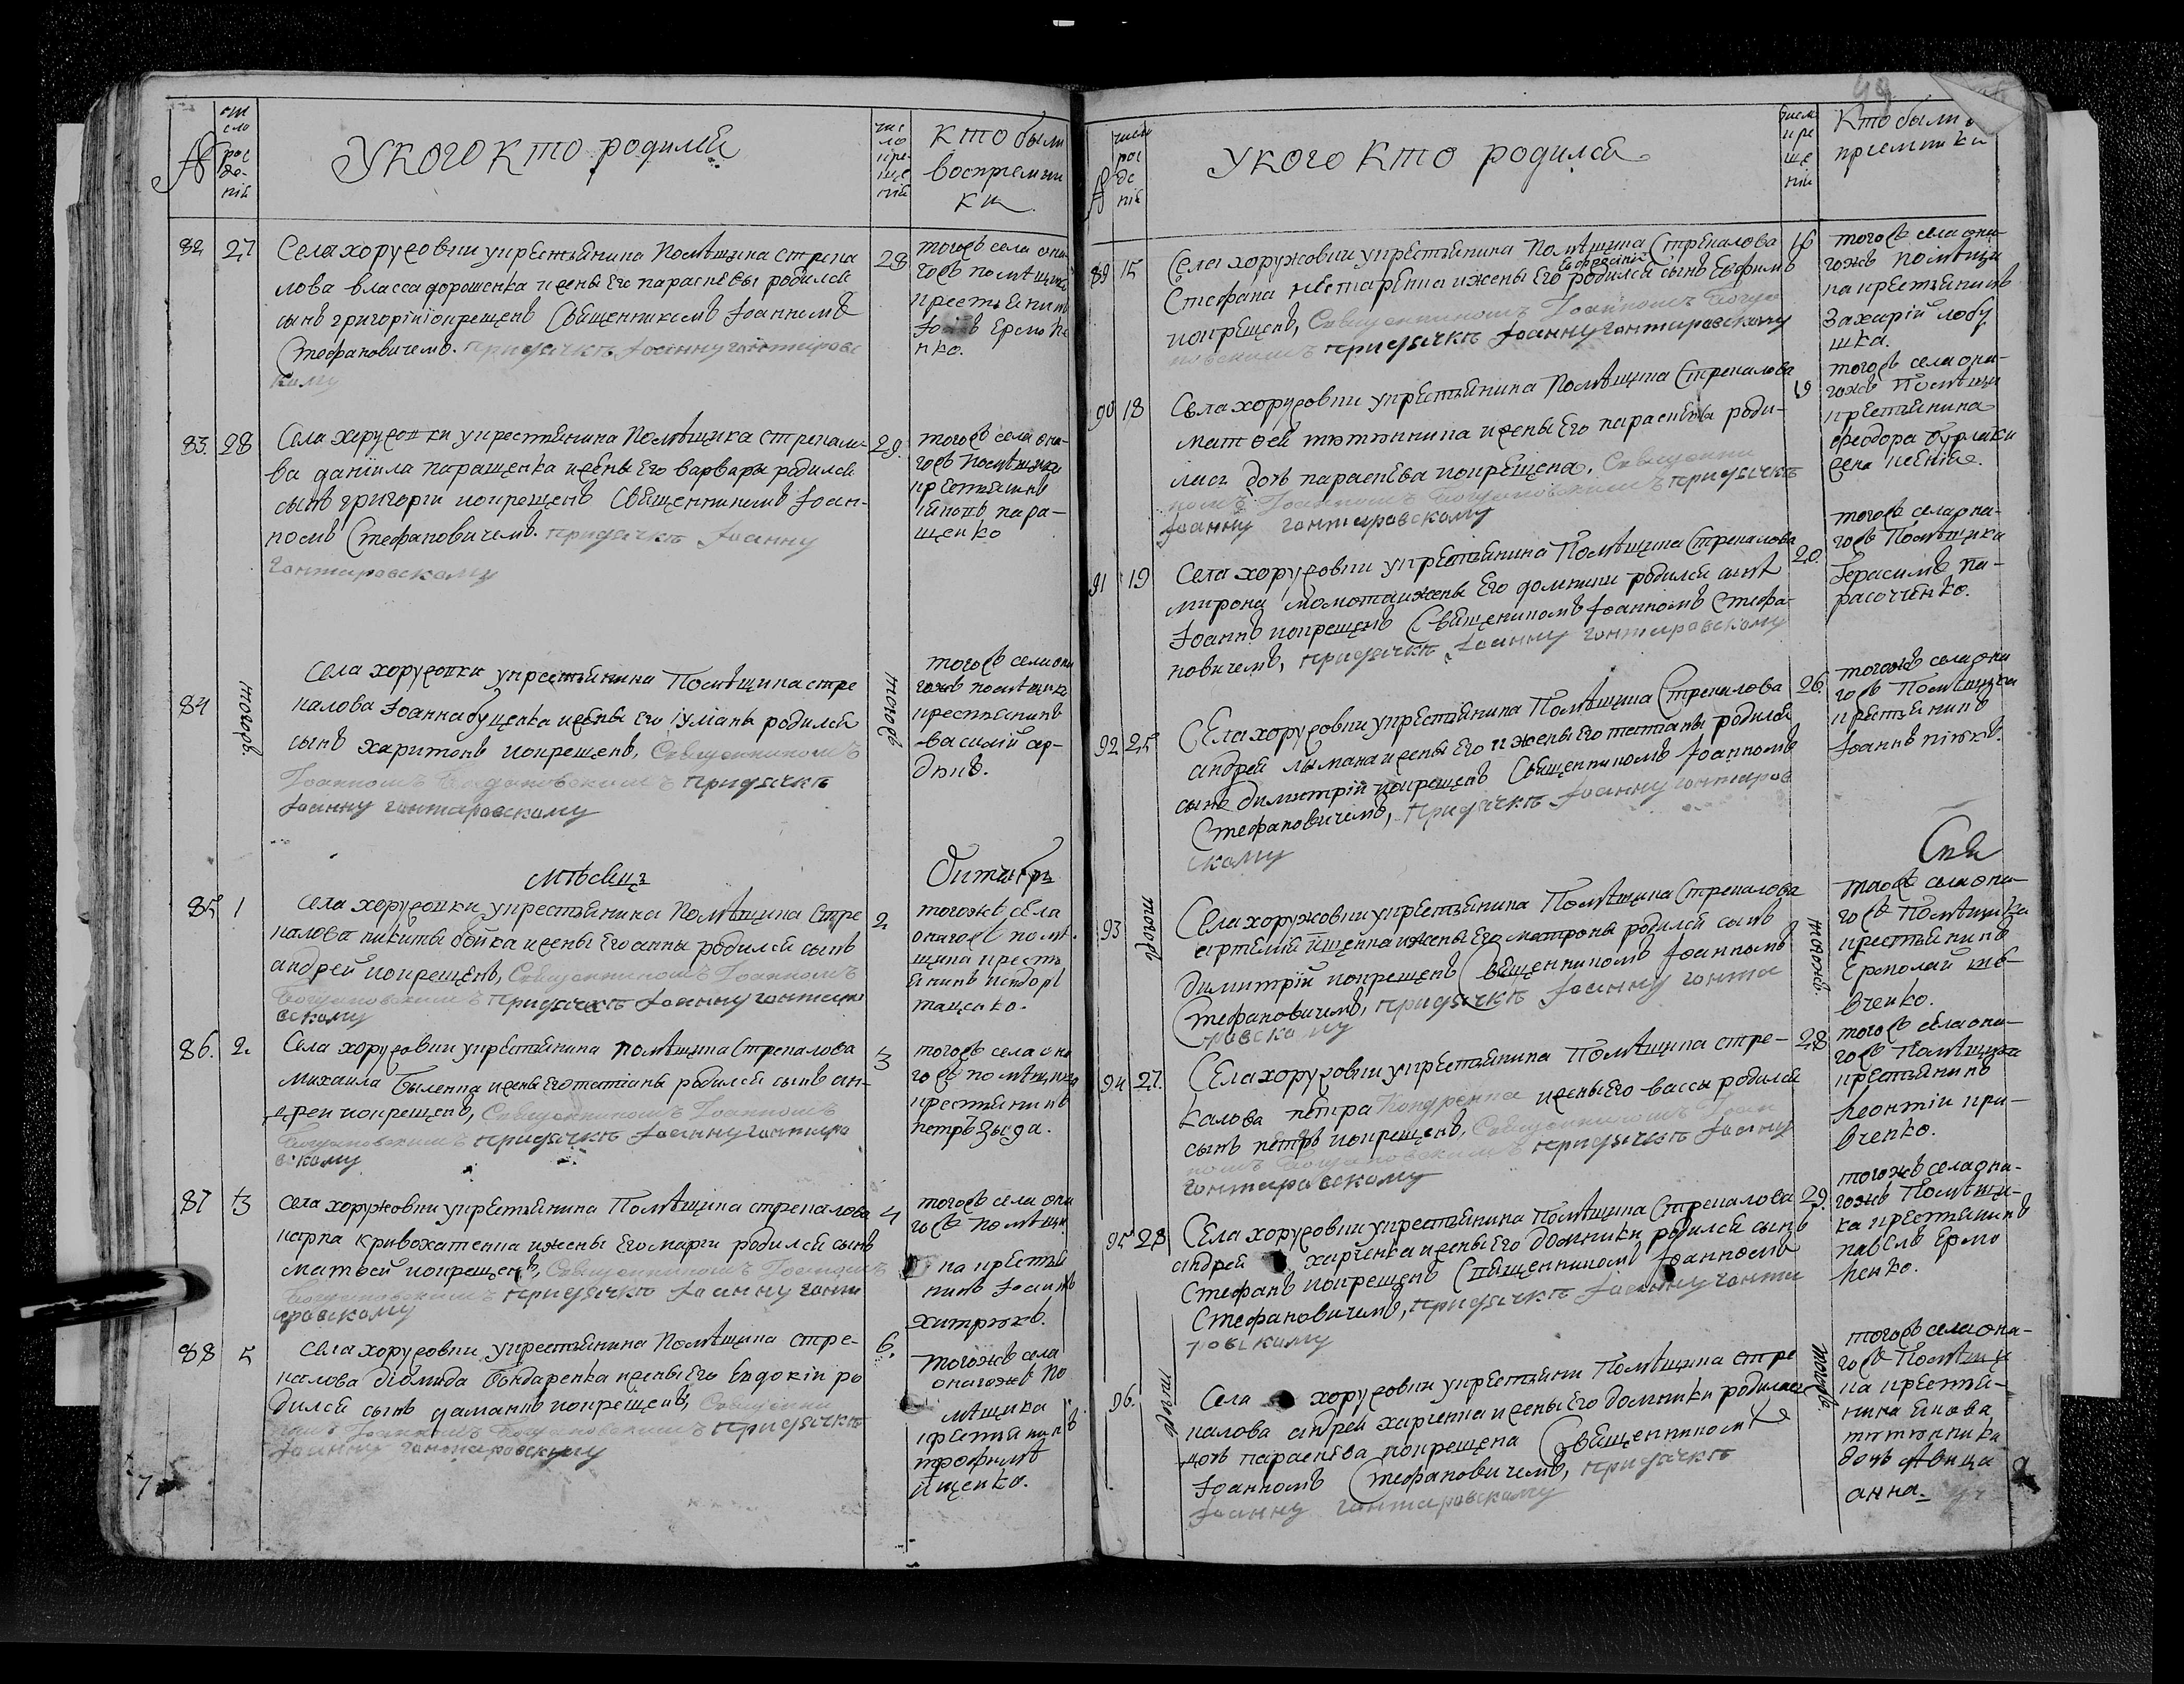 49
№
число рождения
У кого кто родился
число крещения
кто были
восприемни
ки
82 27
Села хоружовки у крестьянина Помѣщика Стрека
лова власса дорошенка и жены его параскевы родился
сынъ григорій и окрещенъ Священникомъ Іоанномъ
Стефановичемъ. при дьячкѣ Іоанну гонтаровс
кому
28
тогожъ села она
гожъ помѣщика
крестьянинъ
Ермоле
нко.
83. 28
Села хоружовки у крестьянина Помѣщика стрекало
ва даніила паращенка и жены его варвары родился
сынъ григорій и окрещенъ Священникомъ Іоан-
номъ Стефановичемъ. при дьячкѣ Іоанну
гонтаровскому
29.
тогожъ села она-
гожъ помѣщика
крестьянинъ
пара-
щенко
84 тогожъ
Села хоружовки у крестьянина Помѣщика стре
калова Іоанна бущенка и жены его іуліаны родился
сынъ харитонъ и окрещенъ, Священникомъ
Іоанномъ Богдановскимъ при дьячкѣ
Іоанну гонтаровскому
тогожъ
тогожъ села она
гожъ помѣщика
крестьянинъ
василій ар-
дюкъ.
Мѣсяцъ
Октябрь
85 1
Села хоружовки у крестьянина Помѣщика Стре
калова никиты бойка и жены его анны родился сынъ
андрей и окрещенъ, Священникомъ Іоанномъ
Богдановскимъ при дьячкѣ Іоанну гонтаро
вскому
2
тогожъ села
онагожъ помѣ
щика кресть
янинъ
тащенко.
86. 2.
Села хоружовки у крестьянина помѣщика Стрекалова
михаила Быленка и жены его татіаны родился сынъ ан-
дрей и окрещенъ, Священникомъ Іоанномъ
Богдановскимъ при дьячкѣ Іоанну гонтаро
вскому
3
тогожъ села она
гожъ помѣщика
крестьянинъ
петръ Зыда.
87 3
Села хоружовки у крестьянина Помѣщика стрекалова
карпа кривохатенка и жены его марѳи родился сынъ
матѳей и окрещенъ, Священникомъ Іоанномъ
Богдановскимъ при дьячкѣ Іоанну гонта
ровскому
4
тогожъ села она
гожъ помѣщи
ка кресть
нинъ Іоаннъ
хитрюкъ.
88 5
Села хоружовки у крестьянина Помѣщика стре-
калова діомида Бондаренка и жены его Евдокіи ро
дился сынъ даманъ и окрещенъ, Священни
комъ Іоанномъ Богдановскимъ при дьячкѣ
Іоанну гонтаровскому
6.
тогожъ села
онагожъ по
мѣщика
крестьянинъ
трофимъ
ищенко.
№
число рождения
У кого кто родился
число крещения
Кто были
приемники
89 15
Села хоружовки у крестьянина Помѣщика Стрекалова
Стефана нестаренка и жены Его родился сынъ Евфимъ
и окрещенъ, Священникомъ Іоанномъ Богда
новскимъ при дьячкѣ Іоанну гонтаровскому
16
тогожъ села она-
гожъ помѣщи
ка крестьянинъ
Захарій лобу
шка.
90 18
Села хоружовки у крестьянина Помѣщика Стрекалова
матѳей тютюнника и жены Его параскевы роди-
лась дочь параскева и окрещена, Священни
комъ Іоанномъ Богдановскимъ при дьячкѣ
Іоанну гонтаровскому
19
тогожъ села она-
гожъ Помѣщи
крестьянина
феодора бурлаки
жена ксенія.
91 19
Села хоружовки у крестьянина Помѣщика Стрекалова
мирона момота и жены Его домники родился сынъ
Іоаннъ и окрещенъ Священникомъ Іоанномъ Стефа-
новичемъ, при дьячкѣ Іоанну гонтаровскому
20.
тогожъ села она-
гожъ Помѣщика
Герасимъ па-
расоченко.
92 25
Села хоружовки у крестьянина Помѣщика Стрекалова
андрей лымана и жены Его и жены Его татіаны родился
сынъ димитрій и окрещенъ Священникомъ Іоанномъ
Стефановичемъ, при дьячкѣ Іоанну гонтаров
скому
26
тогожъ села она
гожъ Помѣщика
крестьянинъ
Іоаннъ
93 тогожъ
Села хоружовки у крестьянина Помѣщика Стрекалова
артемій ищенка и жены Его матроны родился сынъ
димитрій и окрещенъ Священникомъ Іоанномъ
Стефановичемъ, при дьячкѣ Іоанну гонта
ровскому
тогожъ
тогожъ села она-
гожъ Помѣщика
крестьянинъ
Ермолай ше-
вченко.
94 27.
Села хоружовки у крестьянина Помѣщика стре-
калова петра Кондренка и жены Его вассы родился
сынъ петръ и окрещенъ, Священникомъ Іоан
номъ Богдановскимъ при дьячкѣ Іоанну
гонтаровскому
28
тогожъ села она-
гожъ Помѣщика
крестьянинъ
леонтій кри-
вченко.
95 28
Села хоружовки у крестьянина Помѣщика Стрекалова
андрей харченка и жены Его домники родился сынъ
Стефанъ и окрещенъ Священникомъ Іоанномъ
Стефановичемъ, при дьячкѣ Іоанну гонта
ровскому
29.
тогожъ села она-
гожъ Помѣщи-
ка крестьянинъ
павелъ Ермо
ленко.
96. тогожъ
Села хоружовки у крестьянина Помѣщика стре
калова андрей харченка и жены Его домники родилась
дочь параскева и окрещена Священникомъ
Іоанномъ Стефановичемъ, при дьячкѣ
Іоанну гонтаровскому
тогожъ
тогожъ села она-
гожъ Помѣщи
ка крестья-
нина якова
тютюнника
дочь дѣвица
анна.